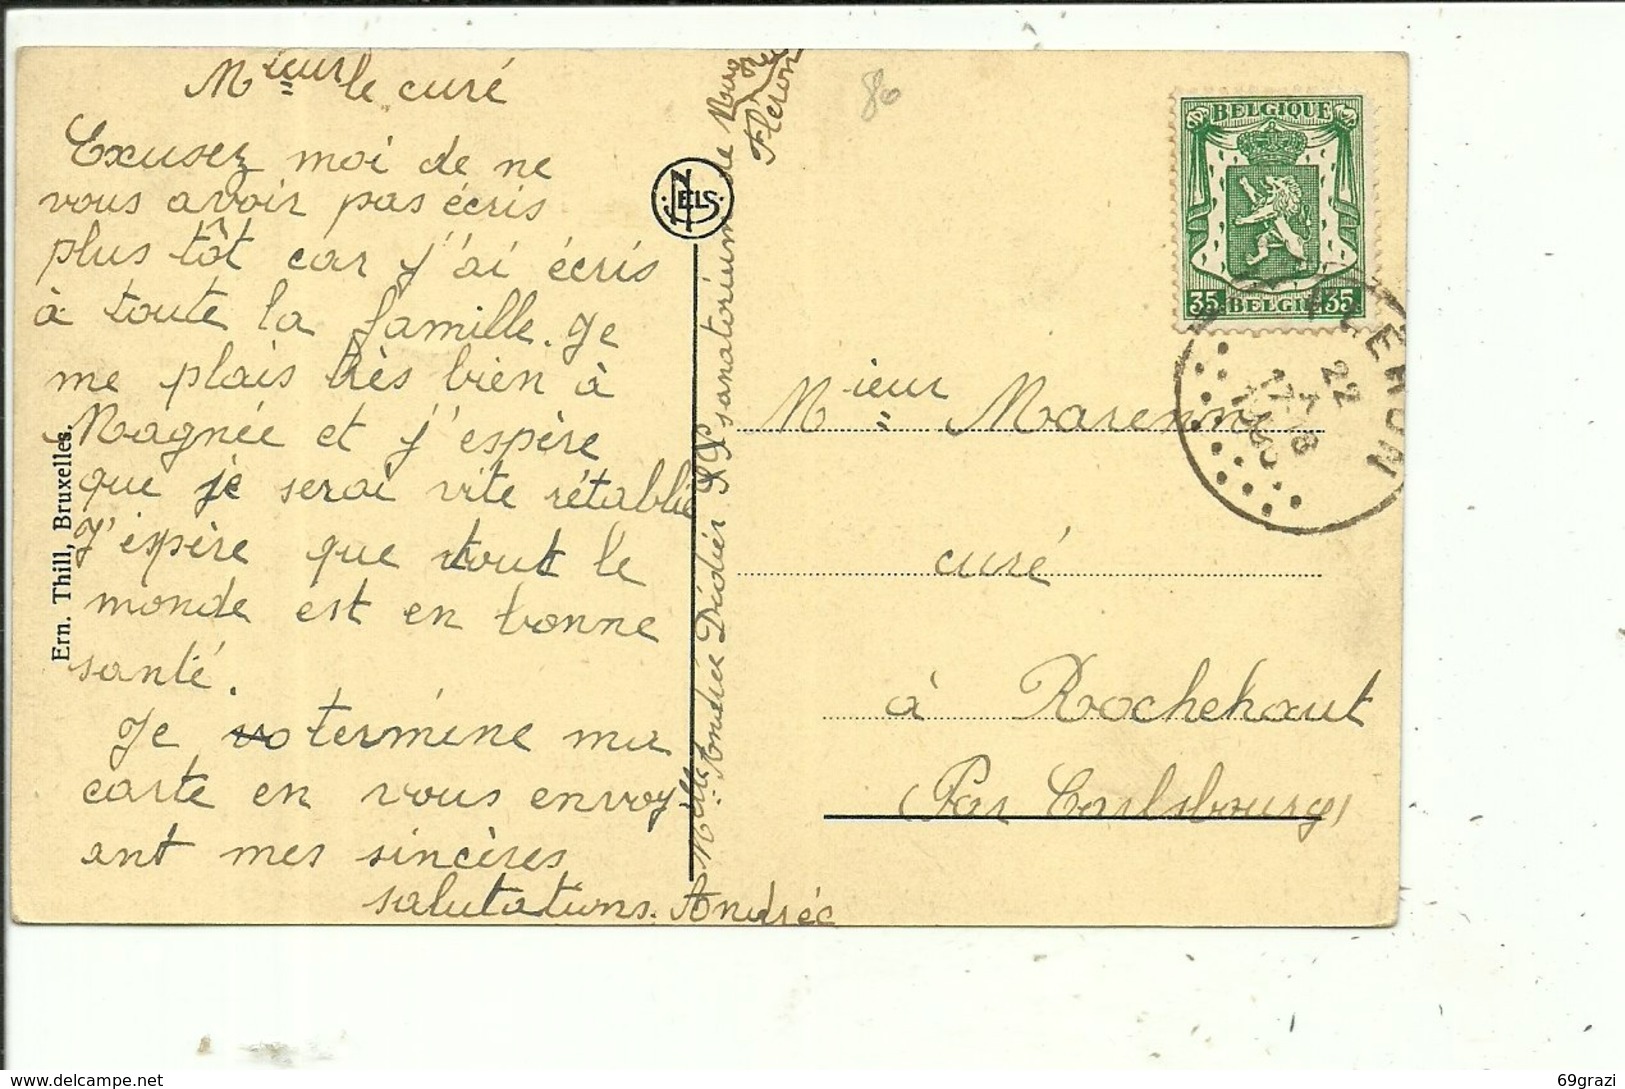 Mieur le curé
Exusez moi de ne
vous avoir pas écris
plus tôt car j'ai écris
à toute la famille. Je
me plais très bien à
Magnée et j'espère
que je serai vite rétablie
J'espère que tout le
monde est en bonne
santé.
Je termine ma
carte en vous envoy
ant mes sincères
salutations. Andrée
Ern. Thill, Bruxelles.
NELS
Melle Andrée Dédier sanatorium de Magnée
Fléron
80
BELGIQUE
35 BELGIE 35
FLERON
22
17-18
Mieur Marenn
curé
à Rochehaut
(Par Carlsbourg)
69grazi